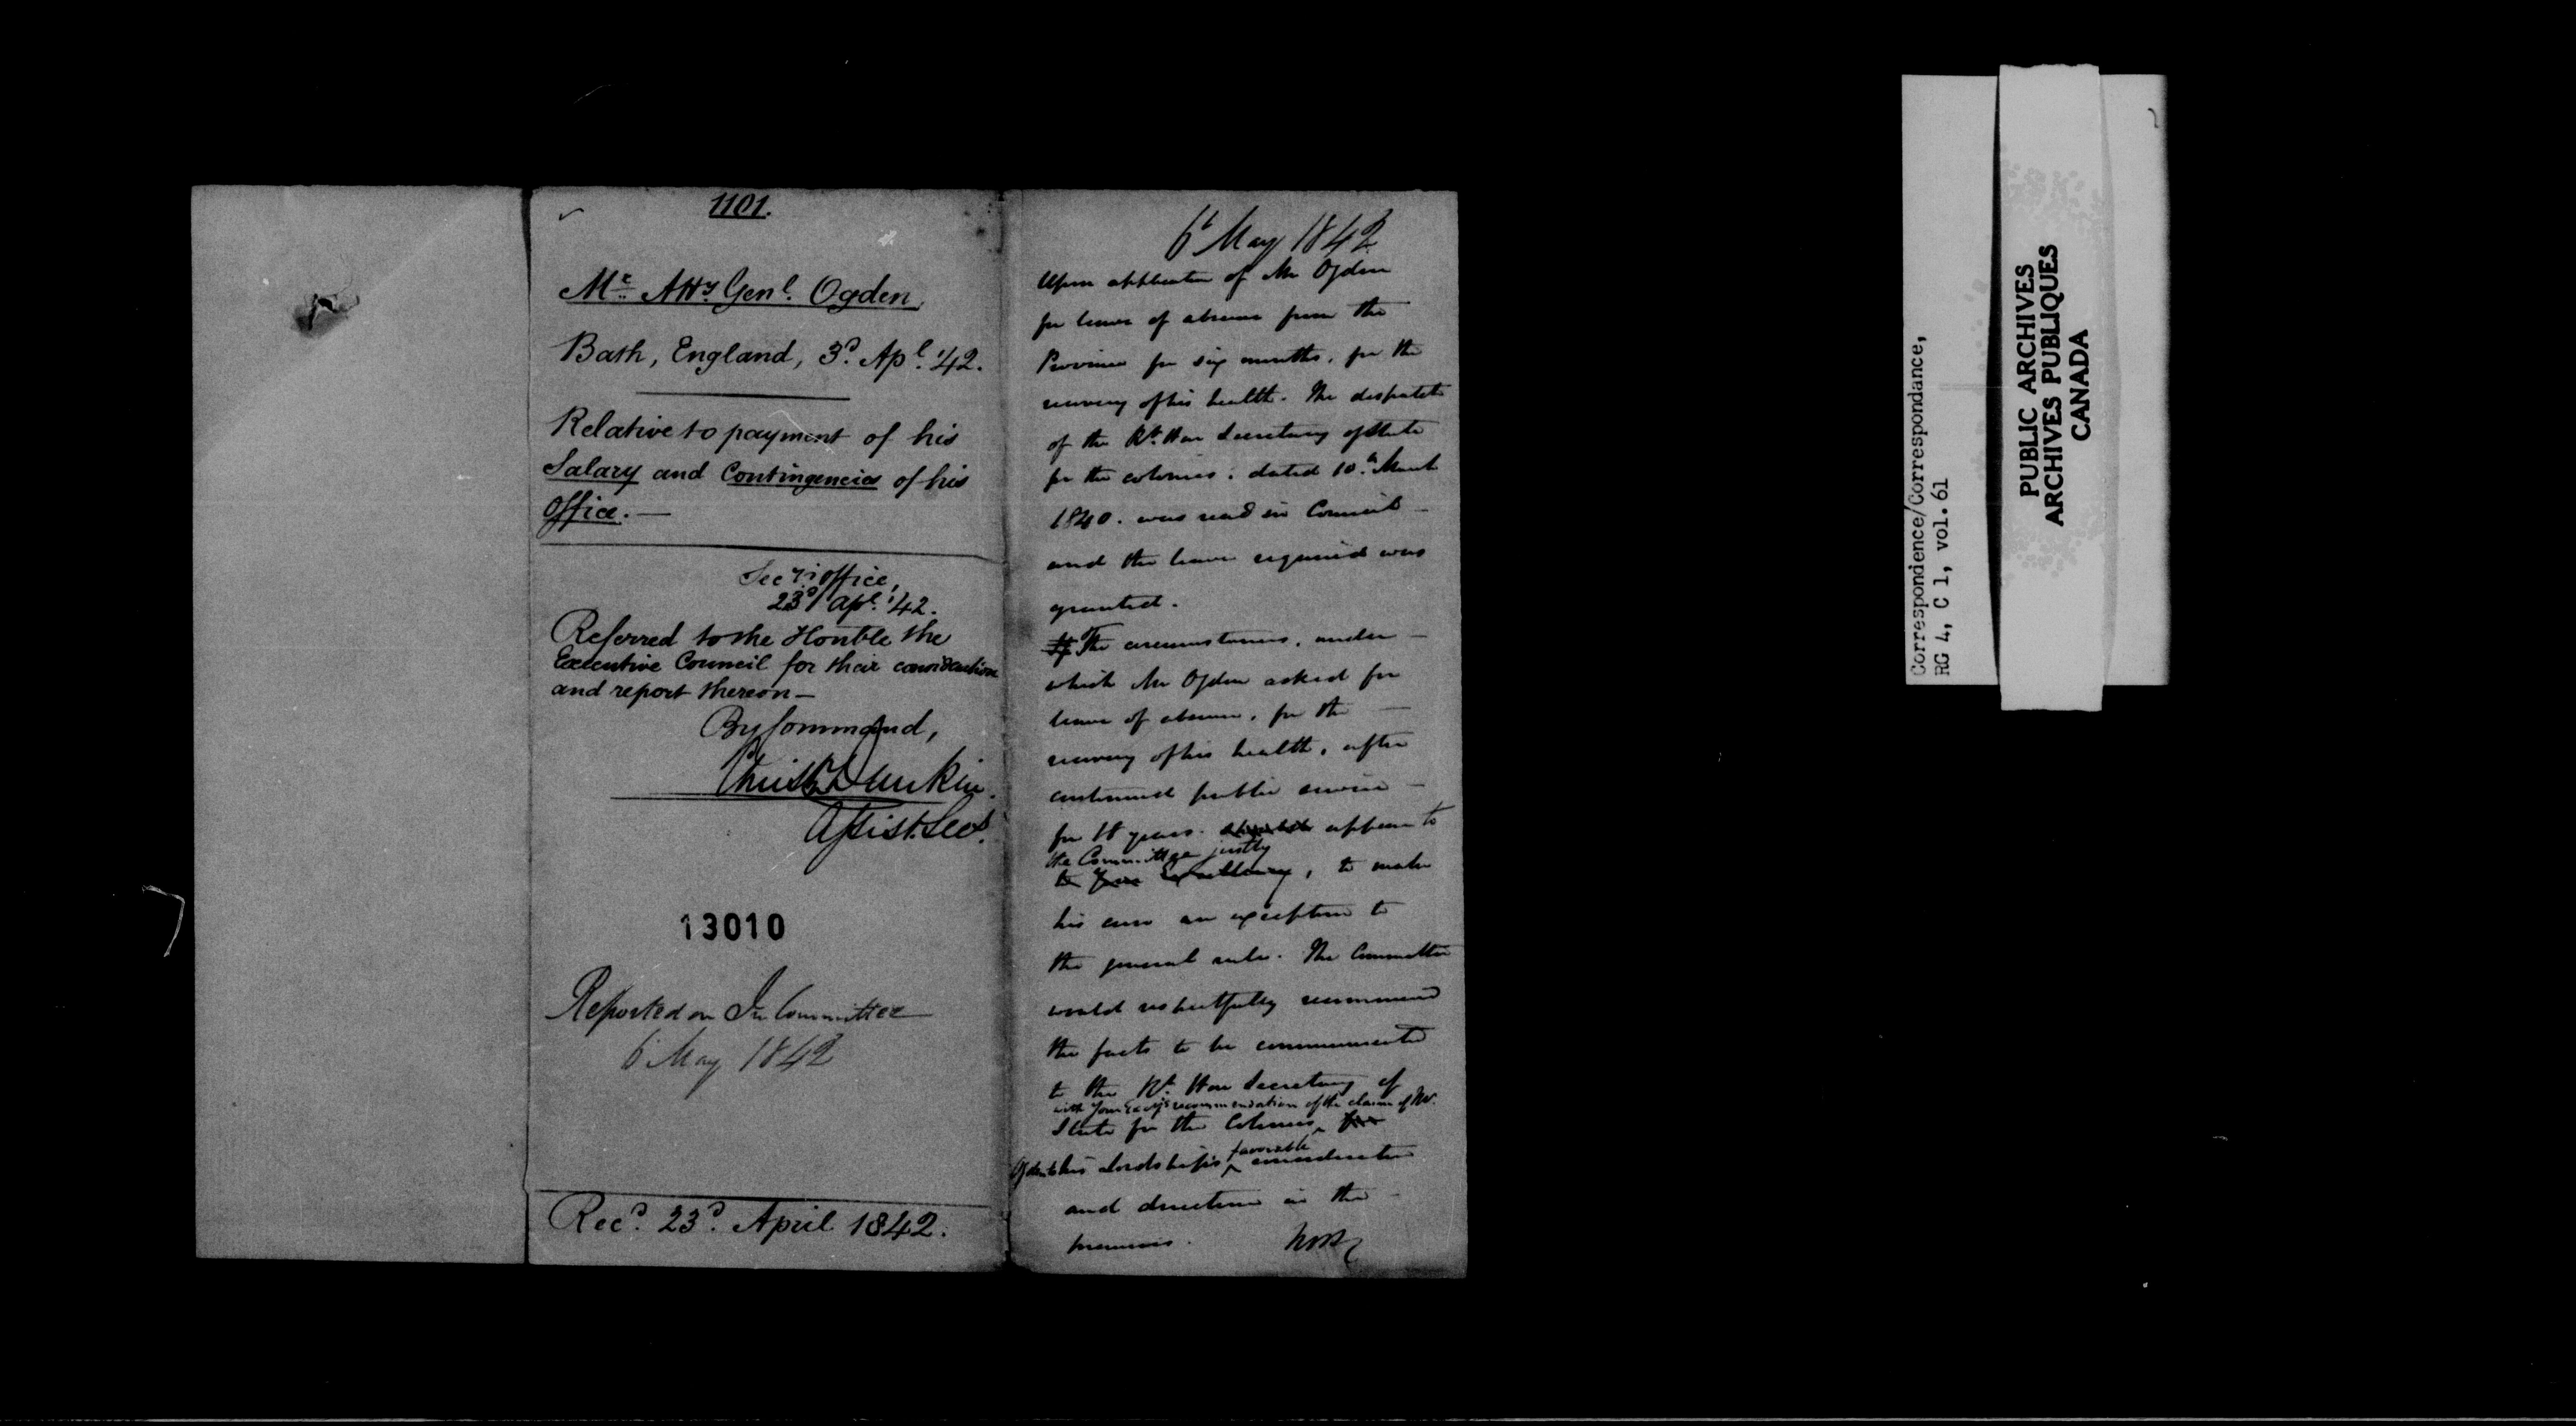 1101.
Mr. Atty Genl. Ogden,
Bath, England, 3d. Apl. '42.
Relative to payment of his
Salary and Contingencies of his
Office. —
Secy's office,
23d Apl. '42.
Referred to the Honble the
Executive Council for their consideration
and report thereon —
By Command,
Christr Dunkin.
Assist. Secy.
13010
Reported on In Committee
6 May 1842
Recd. 23d. April 1842.
6t May 1842
Upon application of Mr Ogden
for leave of absence from the
Province for six months, for the
recovery of his health. The despatch
of the Rt. Hon Secretary of State
for the colonies, dated 10th March
1840. was read in Council —
and the leave required was
granted.
The circumstances, under —
which Mr Ogden asked for
leave of absence, for the —
recovery of his health, after
continued public service —
for 18 years. appear to
the Committee justly
to Your Excellency, to make
his case an exception to
the general rule. The Committee
would respectfully recommend
the facts to be communicated
to the Rt. Hon Secretary of
with Your Excy's recommendation of the claim of Mr.
State for the Colonies for
Ogden to his Lordship's favorable consideration
and direction in the —
premises.
Correspondence/Correspondance,
RG 4, C 1, vol. 61
PUBLIC ARCHIVES
ARCHIVES PUBLIQUES
CANADA